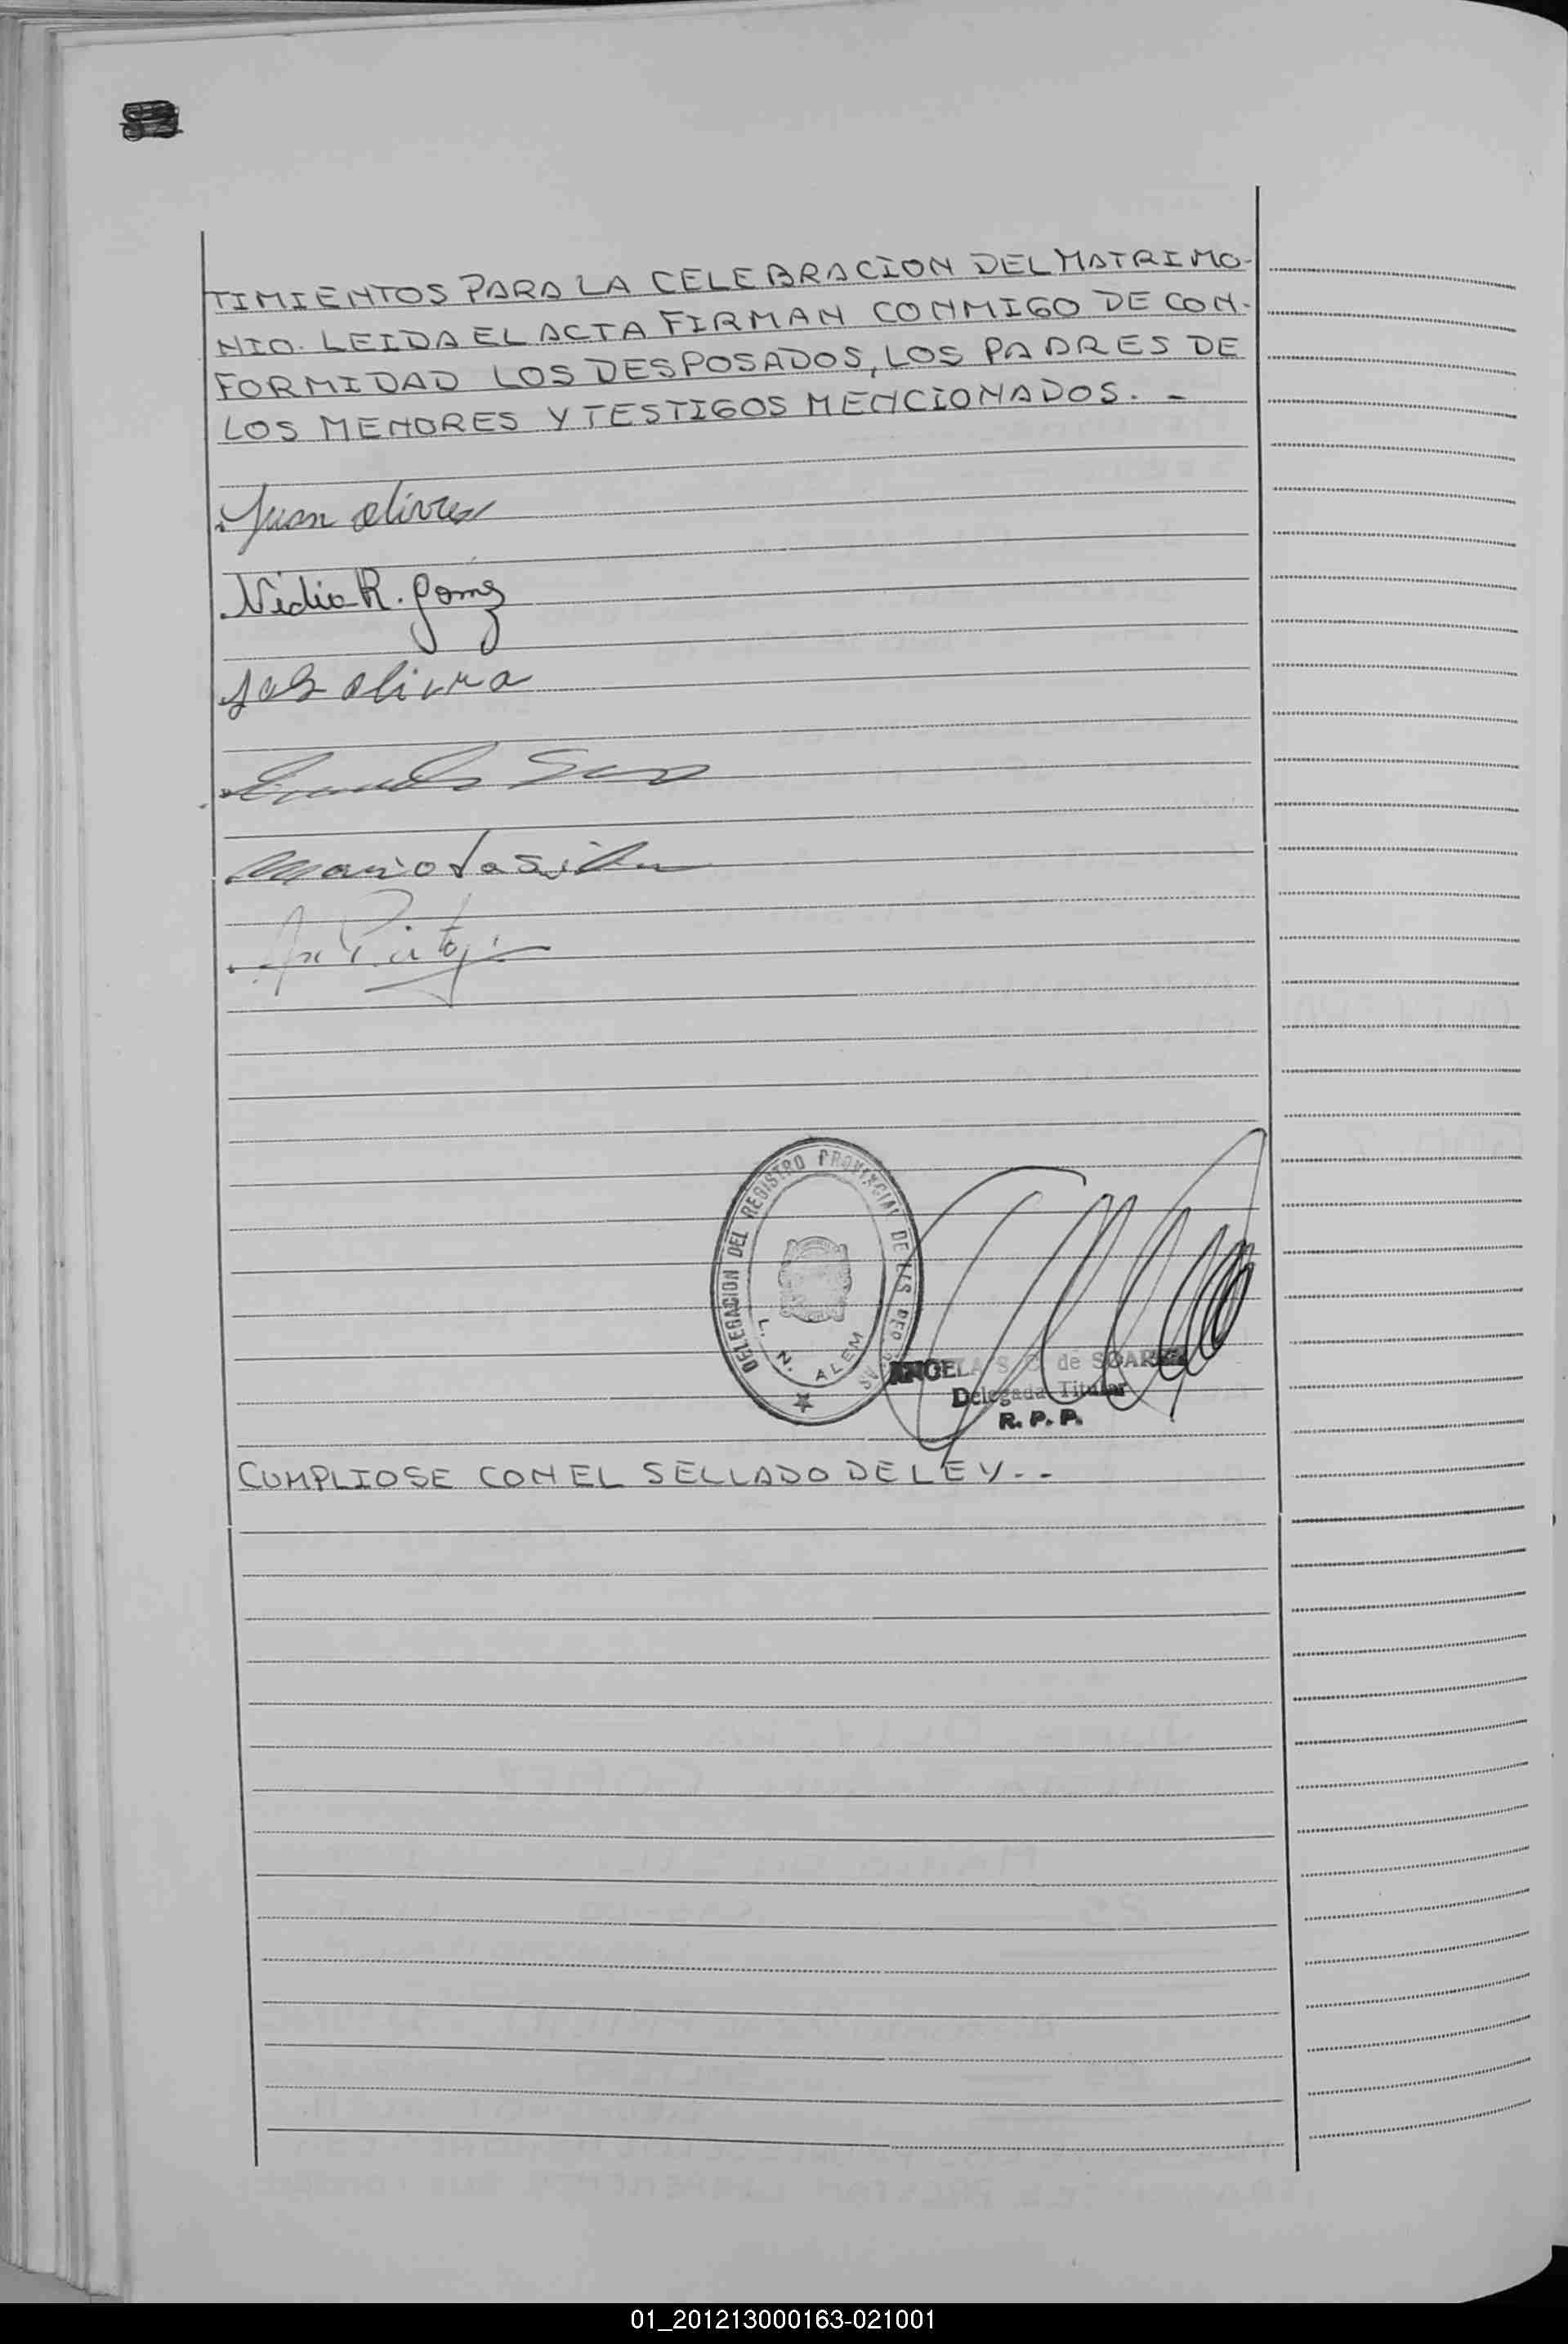 TIMIENTOS PARA LA CELEBRACION DEL MATRIMO-
NIO. LEIDA EL ACTA FIRMAN CONMIGO DE CON-
FORMIDAD LOS DESPOSADOS, LOS PADRES DE
LOS MENORES Y TESTIGOS MENCIONADOS. -
Juan
Nidia R. Gomez
Mario Da Silva
DELEGACION DEL REGISTRO PROVINCIAL DE LAS
L. N. ALEM
ANGELA S. de SOAREZ
Delegada Titular
R. P. P.
CUMPLIOSE CON EL SELLADO DE LEY. -
01_201213000163-021001